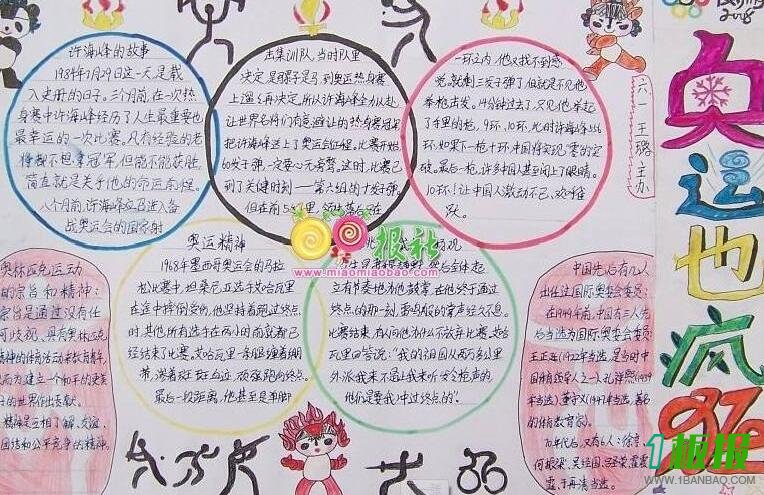 许海峰的故事
1984年7月29日这一天是载
入史册的日子。三个月前,在一次热
身赛中许海峰经历了人生最重要也
最幸运的一次比赛。凡有经验的老
将我不担拿冠军,但能不能获胜,
简直就是关乎他的命运前程。
八个月前,许海峰应召进入备
战奥运会的国家射
击集训队,当时队里
决定,是骡子是马,到奥运热身赛
上遛遛再决定,所以许海峰全力以赴,
把许海峰送上了奥运会征程。比赛开始
60发子弹,一定要心无旁骛。这时,比赛已
到了关健时刻——第六组的十发子弹。
一环之内,他又找不到感
觉,就剩三发子弹了,但就是不见他
举枪击发。14分钟过去了,只见他举起
了手里的枪。9环、10环,此时许海峰
环,如果下一枪十环中国将实现"零的突
破。最后一枪,许多中国人甚至闭上了眼睛。
10环!让中国人激动不已、欢呼雀
跃。
六一 王璐 主办
2008
奥运也疯狂
奥运精神
1968年墨西哥奥运会的马拉
松比赛中,坦桑尼亚选手艾哈瓦里
在途中摔倒受伤,他坚持着跑过终点
时,其他所有选手在两小时前就都已
经结束了比赛。艾哈瓦里一条腿缠着绷
带,淌着斑斑血迹,顽强跑向终点。
最后一段距离,他甚至是单脚
立有节奏地为他鼓掌,在他终于通过
终点的那一刻,雷鸣般的掌声经久不息。
比赛结束,有人问他为什么不放弃比赛。艾哈
瓦里回答说:"我的祖国从两万多公里
外派我来不是让我来听发令枪声的,
他们是要我冲过终点的。"
奥林匹克运动
的宗旨和精神:
宗旨是通过没有任
何歧视、具有奥林匹克
精神的体育活动来教育青年,
从而为建立一个和平的更美
好的世界作出贡献。
精神是互相了解、友谊、
团结和公平竞争的精神。
中国先后有几人
出任过国际奥委会委员:
在1949年前,中国有三人先
后当选为国际奥委会委员:
王正廷(1922年当选,是当时中
国体育领导人之一)、孔祥熙(1939
年当选)、董守义(1947年当选,著名
的体育教育家)。
70年代后,又有6人:徐亨、
何振梁、吴经国、吕圣荣、
于再清当选。
报社
www.miaomiaobao.com
1板报
WWW.1BANBAO.COM